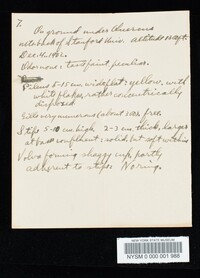 7.
On ground under Quercus
notebook of Stanford Univ. Altitude 100 ft.
Dec. 4. 1902.
Odor none; taste faint peculiar.
Pileus 5-15 cm wide, flat; yellow, with
white flakes rather concentrically
disposed
Gills very numerous (about 200) free.
Stipe 5-10 cm high 2-3 cm thick, larger
at base confluent; solid but soft within
Volva forming shaggy cup, partly
adherent to stipe. No ring.
NEW YORK STATE MUSEUM
NYSM 0 000 001 988